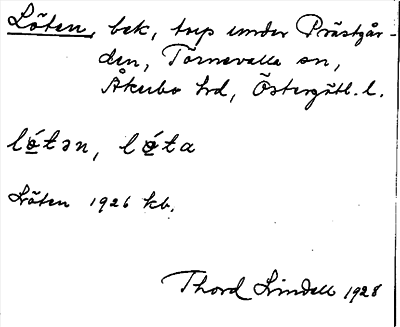 Löten, bek, torp under Prästgår-
den, Törnevalla sn,
Åkerbo hd, Östergötl. l.
lǿtən, lǿta
Löten 1926 kb.
Thord Lindell 1928